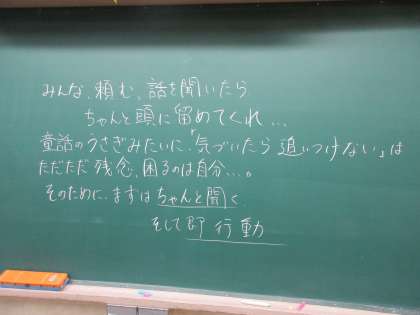 みんな、頼む、話を聞いたら
ちゃんと頭に留めてくれ…
童話のうさぎみたいに、「気づいたら追いつけない」は
ただただ残念、困るのは自分…。
そのために、まずはちゃんと聞く
そして即行動